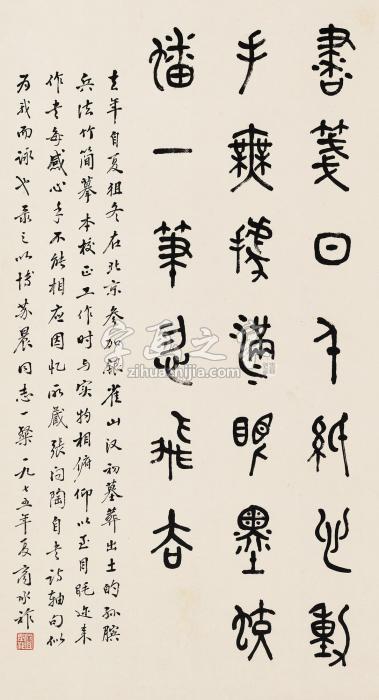 書箋日千紙心動
手無據滿眼墨蛟
蟠一筆忽飛去
去年自夏徂冬在北京参加银雀山汉初墓葬出土的孙膑
兵法竹简摹本校正工作时与实物相俯仰以至目眊迩来
作书每感心手不能相应因忆所藏张问陶自书诗轴句似
为我而咏也录之以博苏晨同志一粲一九七五年夏商承祚
字画之家
zihuazhijia.com